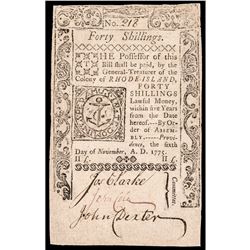 No. 218
Forty Shillings.
THE Possessor of this
Bill shall be paid, by the
General-Treasurer of the
Colony of RHODE-ISLAND,
FORTY
SHILLINGS
Lawful Money,
within five Years
from the Date
hereof.----By Or-
der of ASSEM-
BLY.-----Provi-
dence, the sixth
Day of November, A. D. 1775.
Jos Clarke
John Dexter